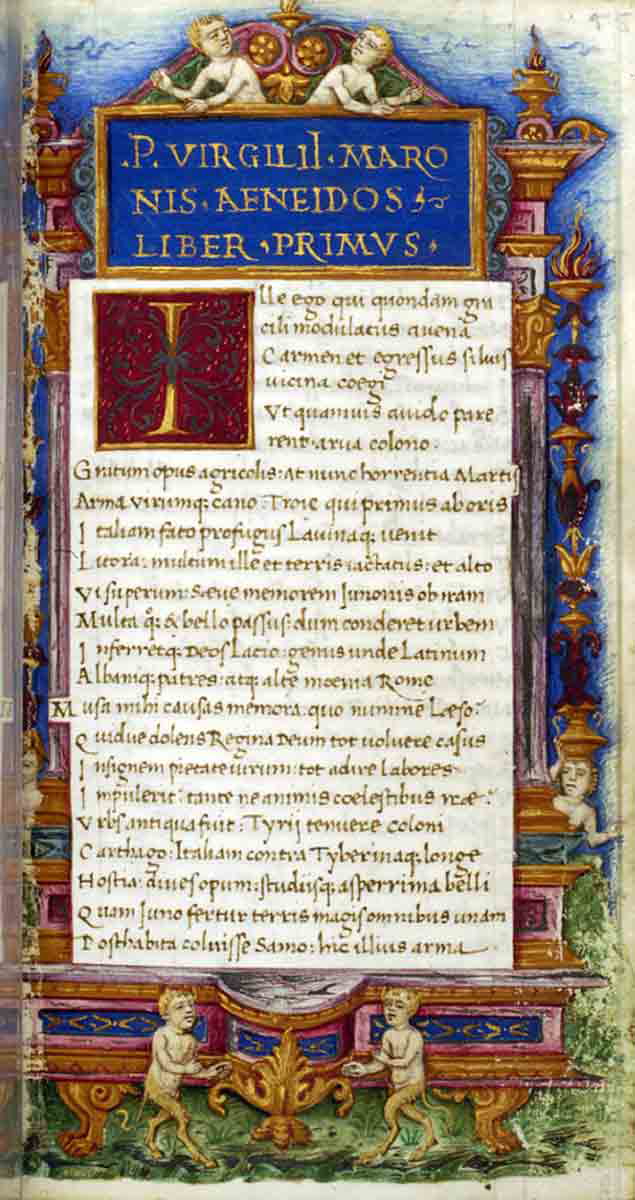 .P. VIRGILII. MARO
NIS. AENEIDOS
LIBER. PRIMVS.
Ille ego qui quondam gra
cili modulatus auena
Carmen et egressus siluis
uicina coegi
Vt quamuis auido pare
rent arua colono:
Gratum opus agricolis: At nunc horrentia Martis
Arma virumq; cano: Troie qui primus ab oris
Italiam fato profugus Lauinaq; uenit
Litora: multum ille et terris iactatus: et alto
Vi superum: Saeue memorem Junonis ob iram
Multa q; & bello passus: dum conderet urbem
Inferretq; Deos Lacio: genus unde Latinum
Albaniq; patres: atq; alte moenia Rome
Musa mihi causas memora. quo numine Laeso:
Quidue dolens Regina Deum tot uoluere casus
Insignem pietate uirum: tot adire Labores
Impulerit: tante ne animis coelestibus irae:
Vrbs antiqua fuit: Tyrij tenuere coloni
Carthago: Italiam contra Tyberinaq; longe
Hostia: diues opum: studiisq; asperrima belli
Quam Juno fertur terris magis omnibus unam
Posthabita coluisse Samo: hic illius arma